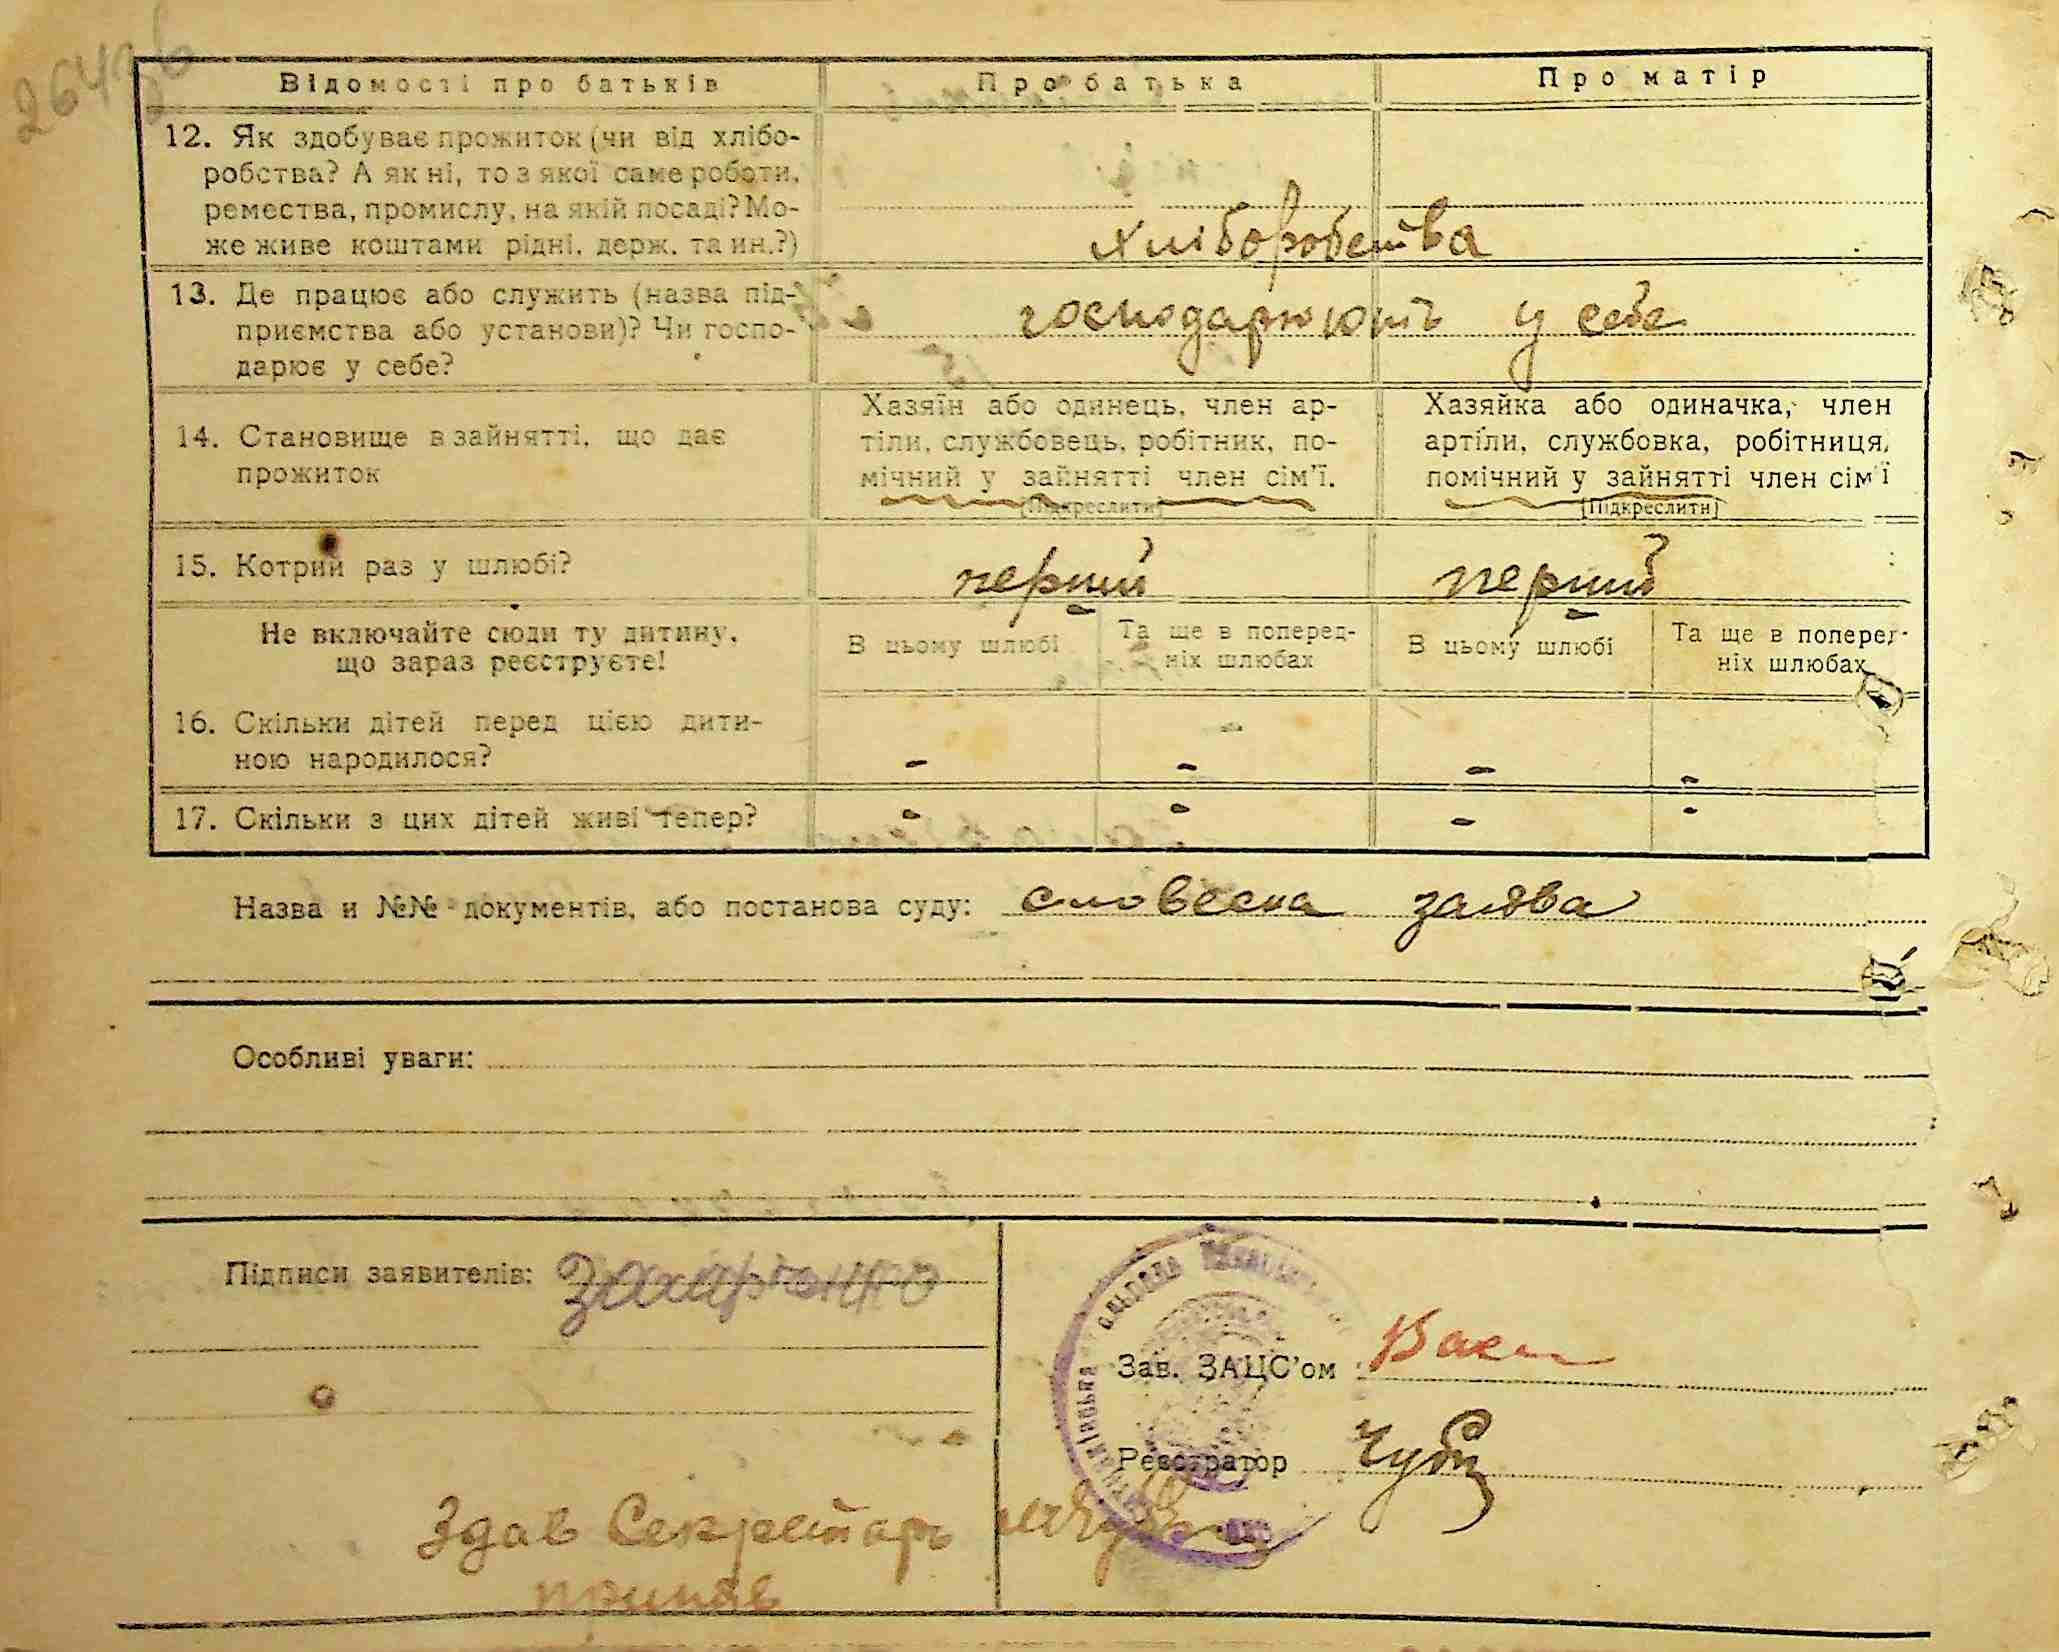 Відомості про батьків
Про батька
Про матір
12. Як здобуває прожиток (чи від хлібо-
робства? А як ні, то з якої саме роботи,
ремества, промислу, на якій посаді? Мо-
же живе коштами рідні, держ. та ин.?)
хліборобства
13. Де працює або служить (назва під-
приємства або установи)? Чи госпо-
дарює у себе?
господарюють у себе
14. Становище в зайнятті, що дає
прожиток
Хазяїн або одинець, член ар-
тіли, службовець, робітник, по-
мічний у зайнятті член сім'ї.
(Підкреслити)
Хазяйка або одиначка, член
артіли, службовка, робітниця,
помічний у зайнятті член сім'ї
(Підкреслити)
15. Котрий раз у шлюбі?
перший
перший
Не включайте сюди ту дитину,
що зараз реєструєте!
В цьому шлюбі
Та ще в поперед-
ніх шлюбах
В цьому шлюбі
Та ще в поперед-
ніх шлюбах
16. Скільки дітей перед цією дити-
ною народилося?
- - - -
17. Скільки з цих дітей живі тепер?
- - - -
Назва и №№ документів, або постанова суду: словесна заява
Особливі уваги:
Підписи заявителів: Захарченко
Зав. ЗАЦС'ом
Реєстратор
Здав Секретар
приняв